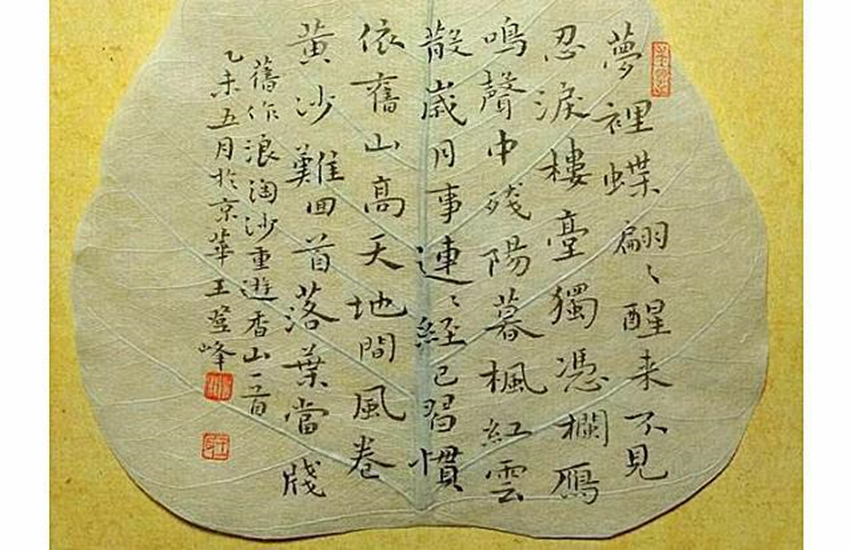 夢裡蝶翩々醒来不見
忍淚樓臺獨憑欄雁
鳴聲中残陽暮楓紅雲
散歲月事連々經已習慣
依舊山高天地間風卷
黄沙難回首落葉當牋
舊作浪淘沙重遊香山一首
乙未五月於京華王登峰